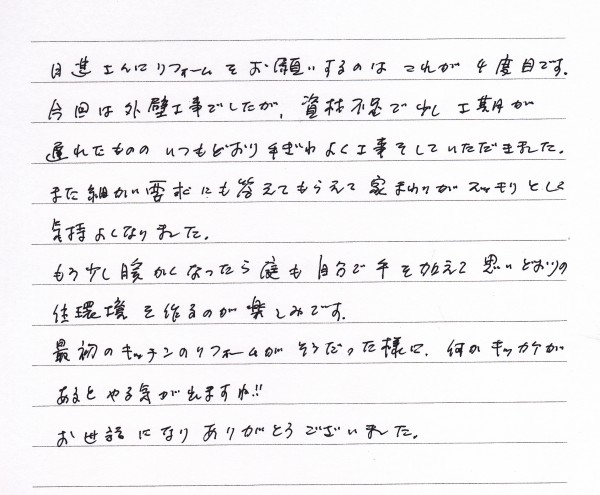 日進さんにリフォームをお願いするのは これが4度目です。
今回は外壁工事でしたが、資材不足で少し工期が
遅れたものの いつもどおり手ぎわよく工事をしていただきました。
また細かい要求にも答えてもらえて 家まわりがスッキリとし
気持よくなりました。
もう少し暖かくなったら庭も自分で手を加えて 思いどおりの
住環境を作るのが楽しみです。
最初のキッチンのリフォームがそうだった様に、何かキッカケが
あるとやる気が出ますね!!
お世話になりありがとうございました。